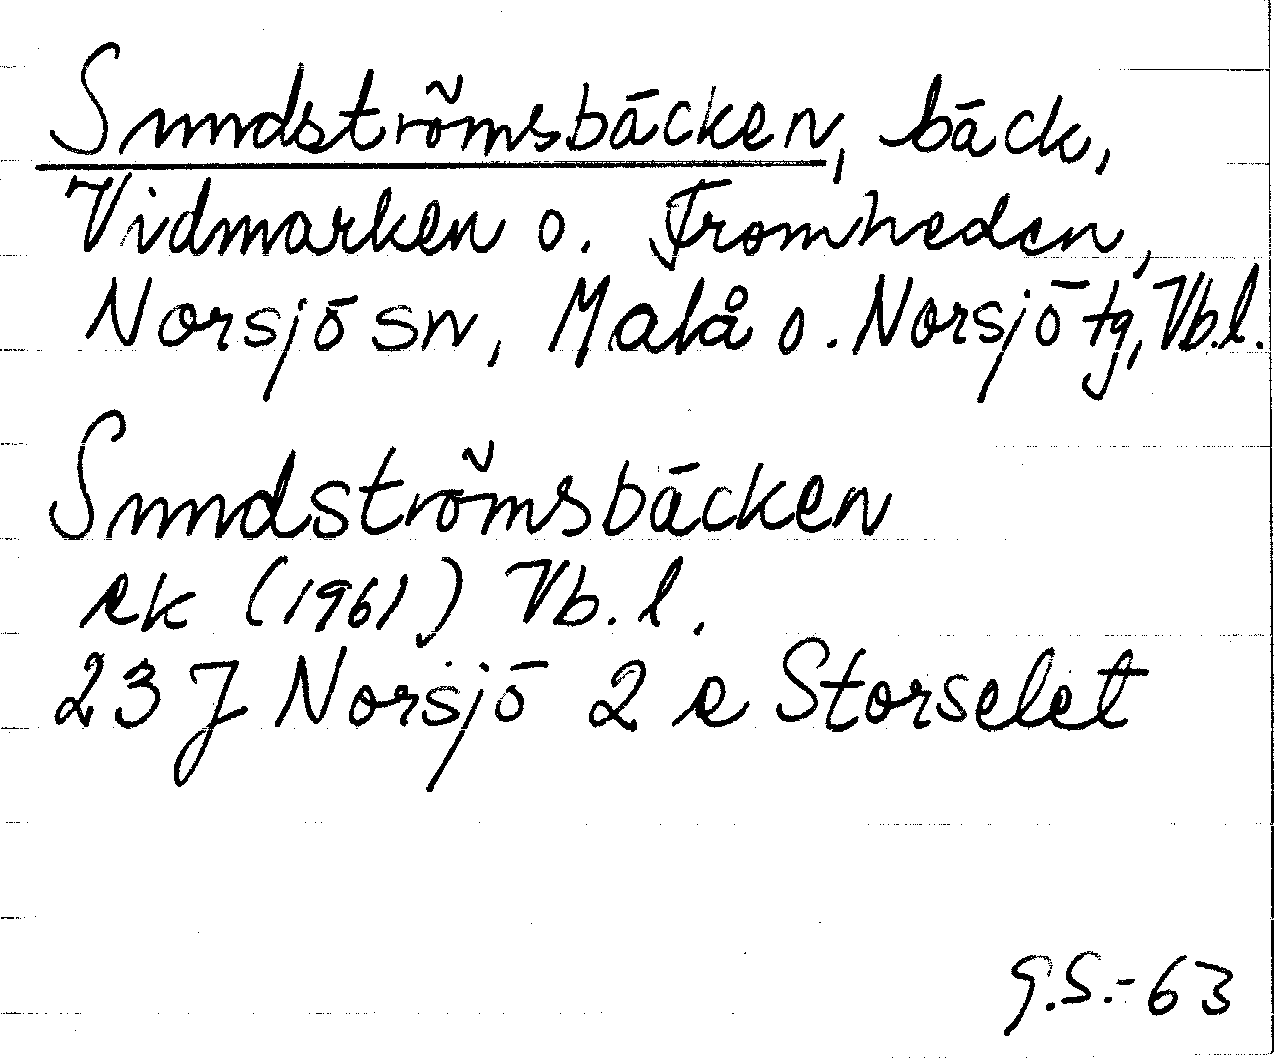 Sundströmsbäcken, bäck,
Vidmarken o. Fromheden,
Norsjö sn, Malå o. Norsjö tg, Vb.l.
Sundströmsbäcken
ek (1961) Vb. l.
23 J Norsjö 2 e Storselet
G.S.-63